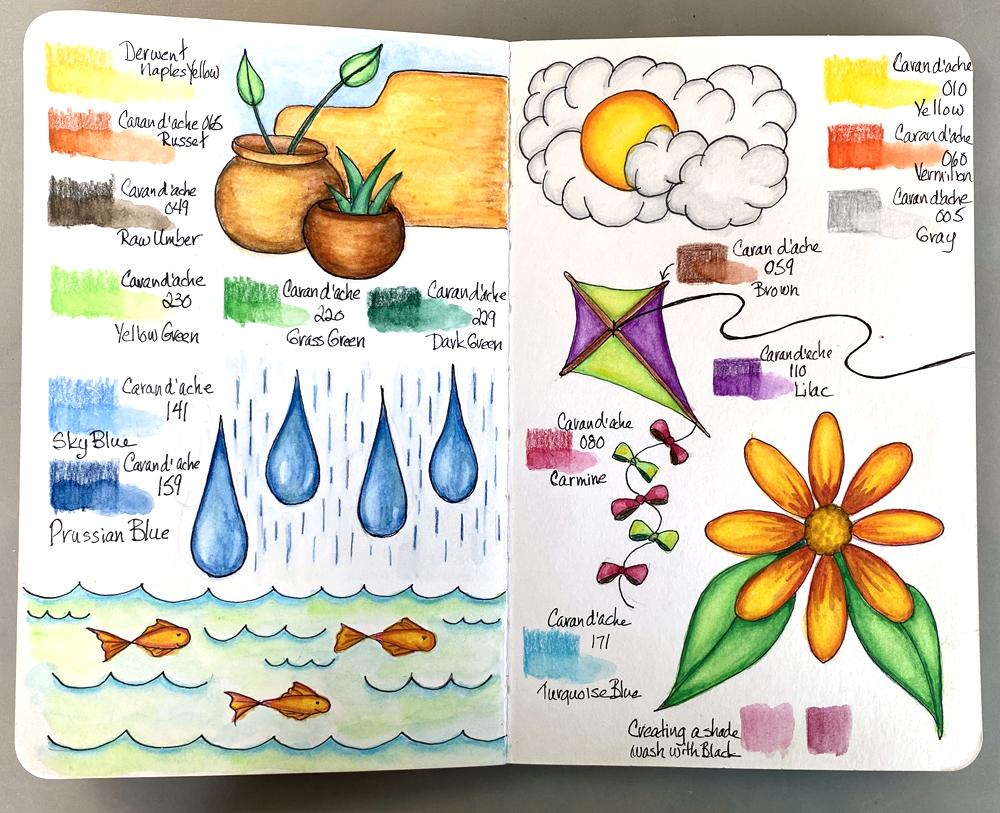 Derwent
Naples Yellow
Caran d'ache 065
Russet
Caran d'ache
049
Raw Umber
Caran d'ache
230
Yellow Green
Caran d'ache
220
Grass Green
Caran d'ache
229
Dark Green
Caran d'ache
141
Sky Blue
Caran d'ache
159
Prussian Blue
Caran d'ache
010
Yellow
Caran d'ache
060
Vermilion
Caran d'ache
005
Gray
Caran d'ache
059
Brown
Caran d'ache
110
Lilac
Caran d'ache
080
Carmine
Caran d'ache
171
Turquoise Blue
Creating a shade
wash with Black